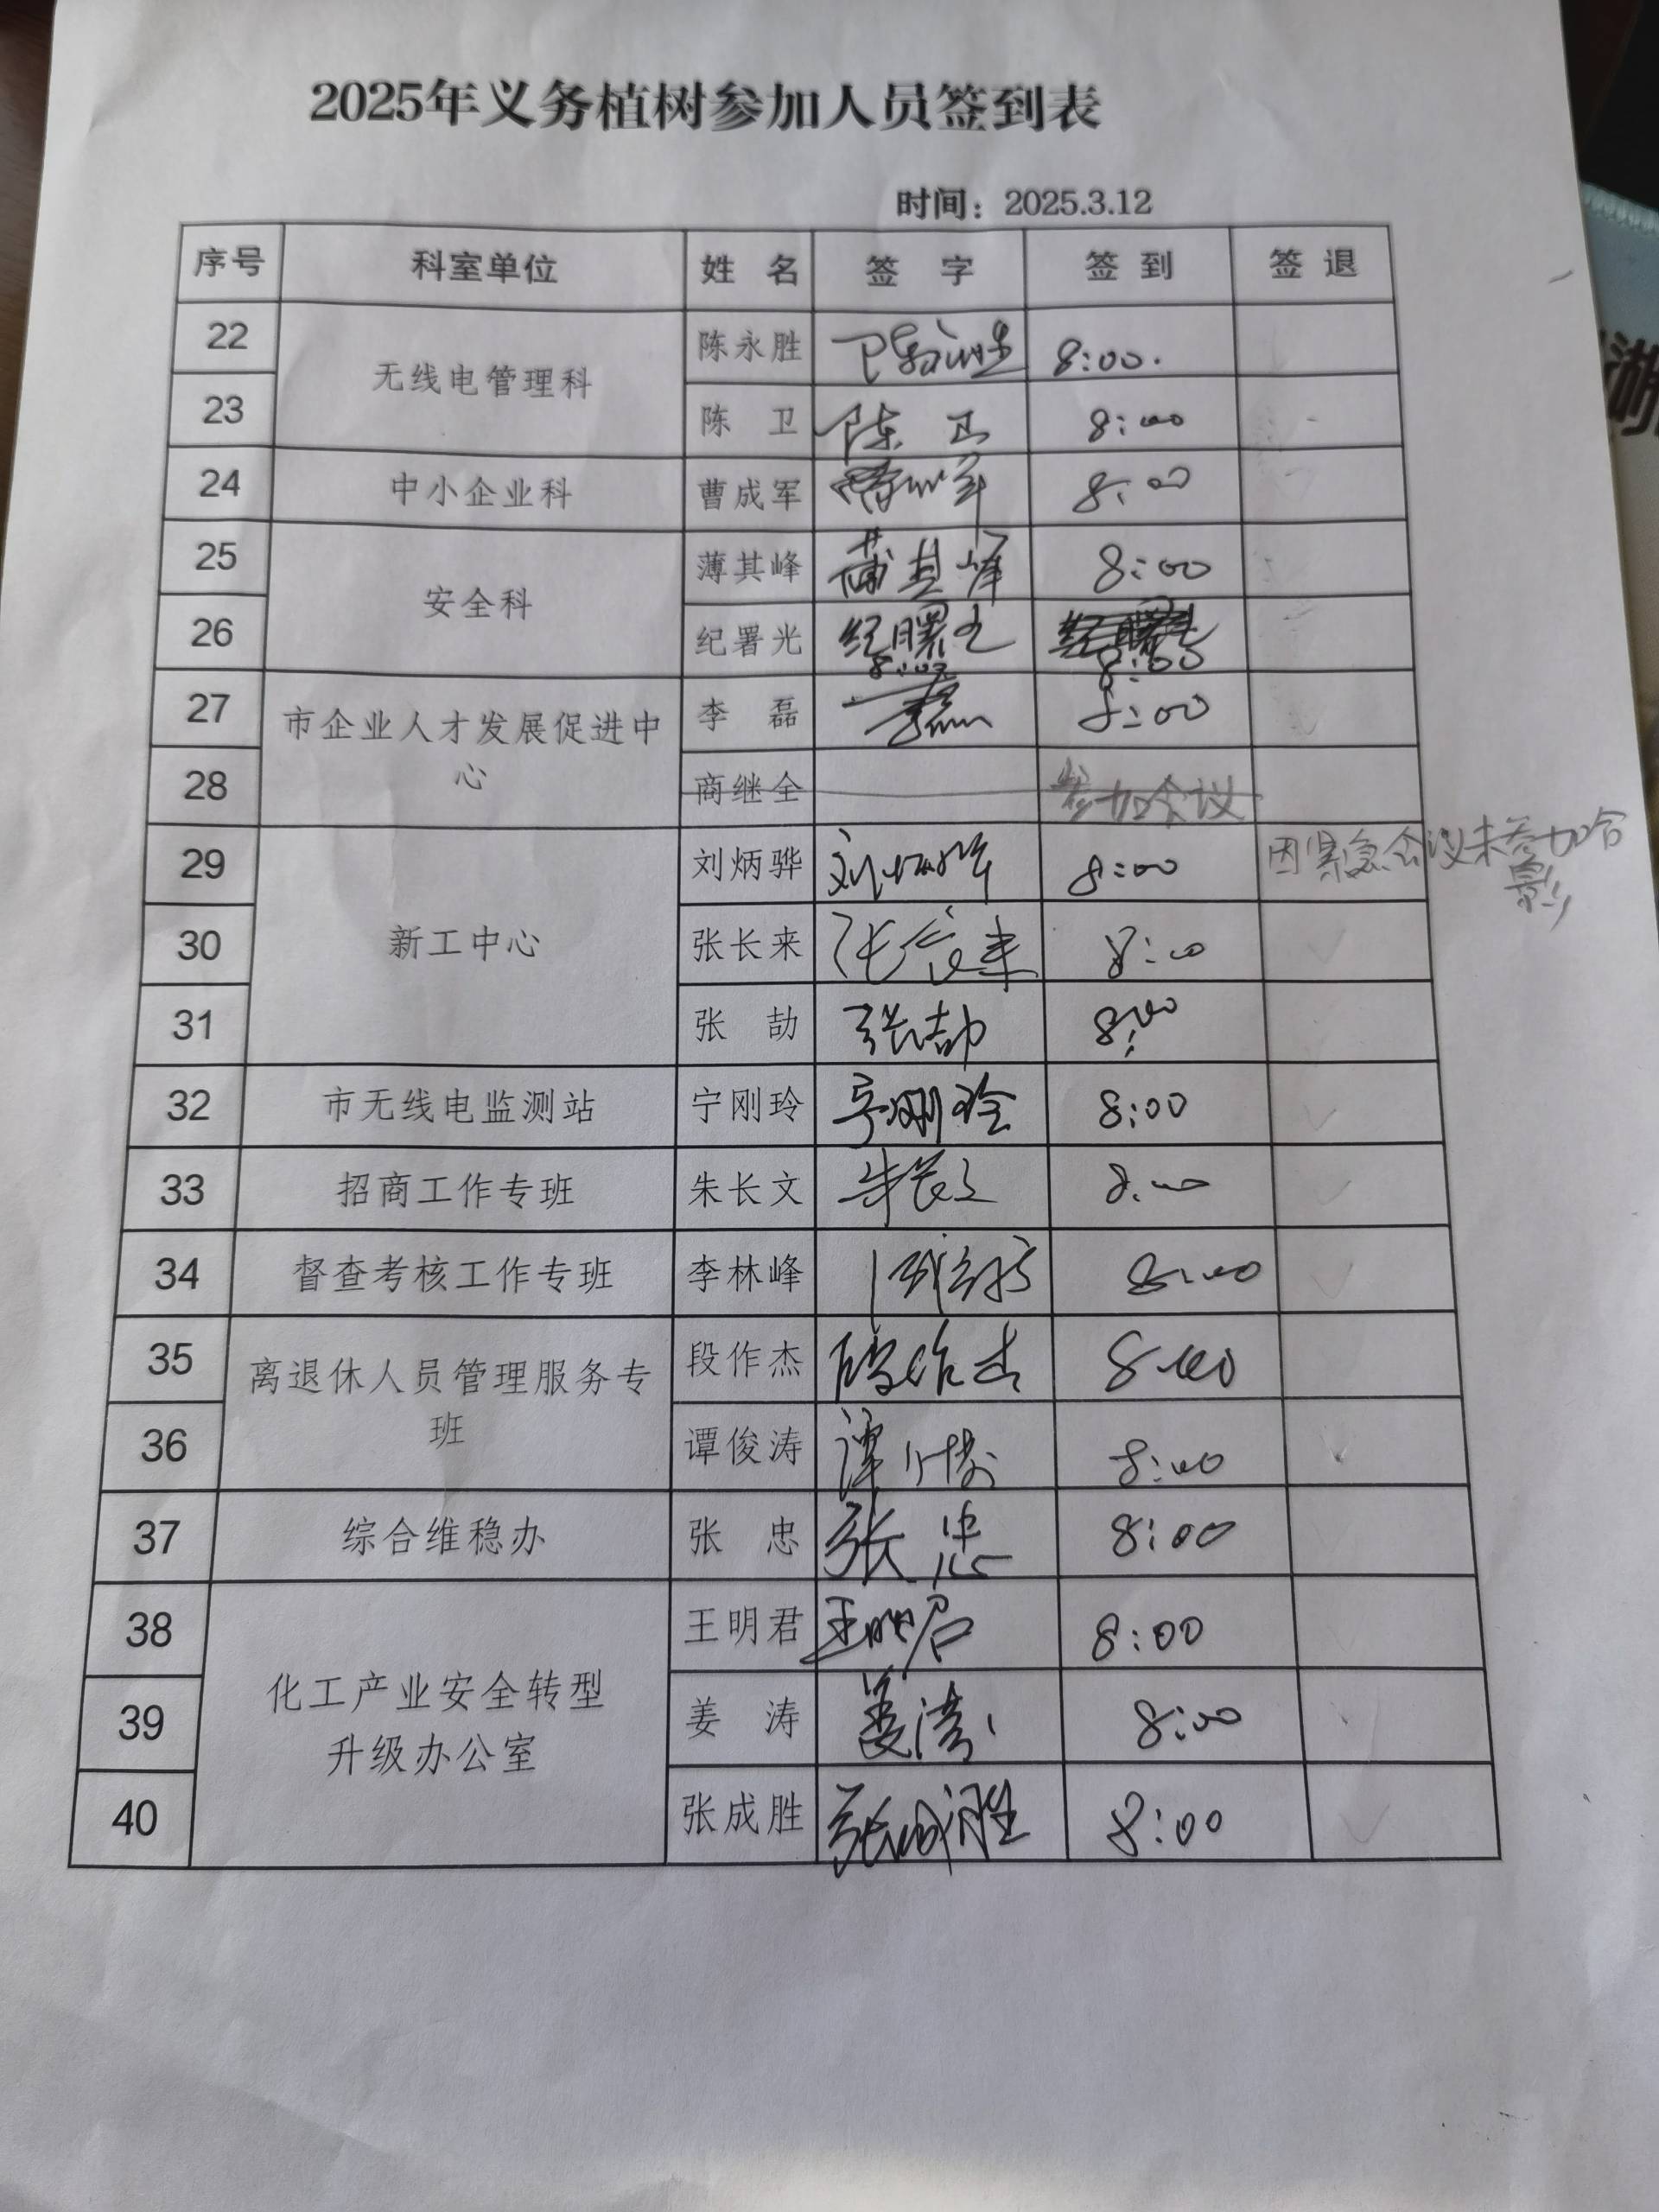 2025年义务植树参加人员签到表
时间：2025.3.12
序号 科室单位 姓 名 签 字 签 到 签 退
22 无线电管理科 陈永胜 陈永胜 8:00.
23 陈 卫 陈 卫 8:00
24 中小企业科 曹成军 曹成军 8:00
25 安全科 薄其峰 薄其峰 8:00
26 纪署光 纪曙光 8:00
8:00
27 市企业人才发展促进中心 李 磊 李磊 8:00
28 商继全 参加会议
29 新工中心 刘炳骅 刘炳骅 8:00 因紧急会议未参加合影
30 张长来 张长来 8:00
31 张 劼 张劼 8:00
32 市无线电监测站 宁刚玲 宁刚玲 8:00
33 招商工作专班 朱长文 朱长文 8:00
34 督查考核工作专班 李林峰 8:00
35 离退休人员管理服务专班 段作杰 段作杰 8:00
36 谭俊涛 谭俊涛 8:00
37 综合维稳办 张 忠 张 忠 8:00
38 化工产业安全转型
升级办公室 王明君 王明君 8:00
39 姜 涛 姜涛 8:00
40 张成胜 张成胜 8:00